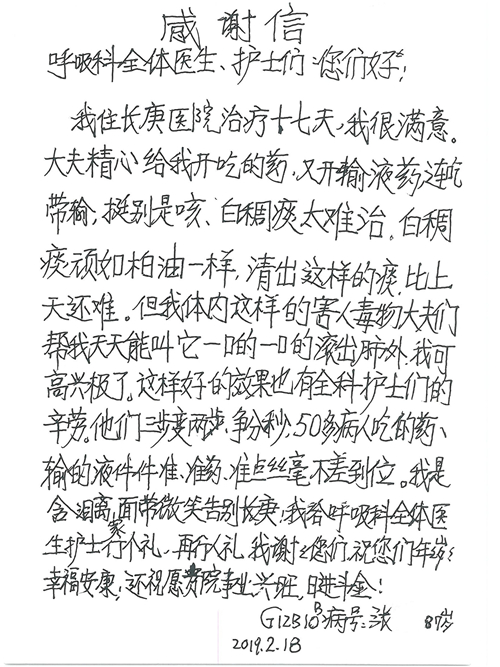 感谢信
呼吸科全体医生、护士们：您们好！
我住长庚医院治疗十七天，我很满意。
大夫精心给我开吃的药，又开输液药，连吃
带输，挺别是咳、白稠痰太难治。白稠
痰顽如柏油一样，清出这样的痰，比上
天还难。但我体内这样的害人毒物大夫们
帮我天天能叫它一口的一口的滚出肺外，我可
高兴极了。这样好的效果也有全科护士们的
辛劳。他们三步变两步，争分秒，50多病人吃的药、
输的液件件准、准药、准点丝毫不差到位。我是
含泪离家，面带微笑告别长庚，我给呼吸科全体医
生护士行个礼，再行人礼，我谢谢您们，祝您们年岁岁
幸福安康；还祝愿院事业兴旺，日进斗金！
G12B10B病号：张 87岁
2019.2.18